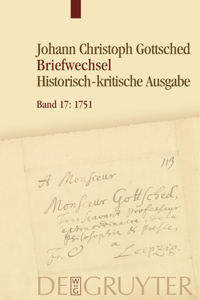 Johann Christoph Gottsched
Briefwechsel
Historisch-kritische Ausgabe
Band 17: 1751
113
A Monsieur
Monsieur Gottsched,
Professeur
extraordinaire, de la
Philosophie & Poesie,
à
Leipzig.
DE GRUYTER